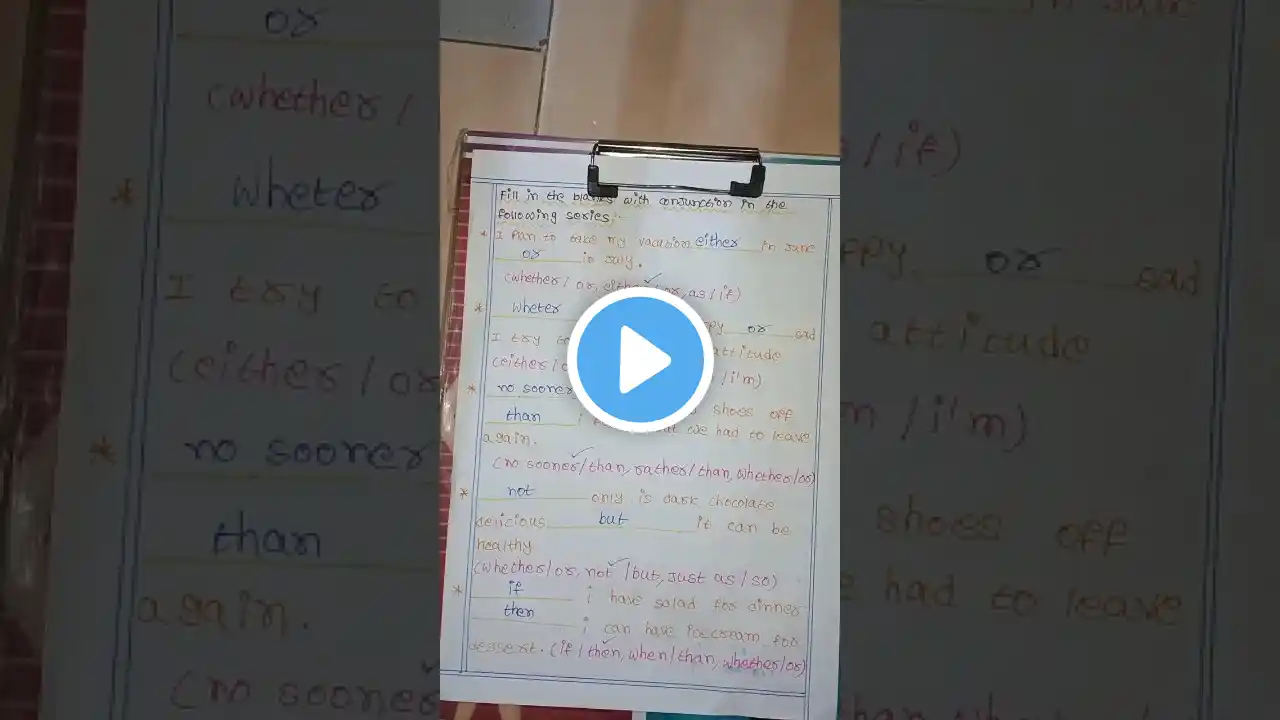 Fill in the blanks with conjunction in the
following series:
* I Plan to take my vacation either in June
or in July.
(whether / or, either / or, as / if)
* wheter ppy or sad
I try to attitude
(either / o / i'm)
* no sooner shoes off
than i we had to leave
again.
(no sooner / than, rather / than, whether / or)
* not only is dark chocolate
delicious but it can be
healthy
(whether / or, not / but, just as / so)
* if i have salad for dinner
then i can have icecream for
dessert. (if / then, when / than, whether / or)